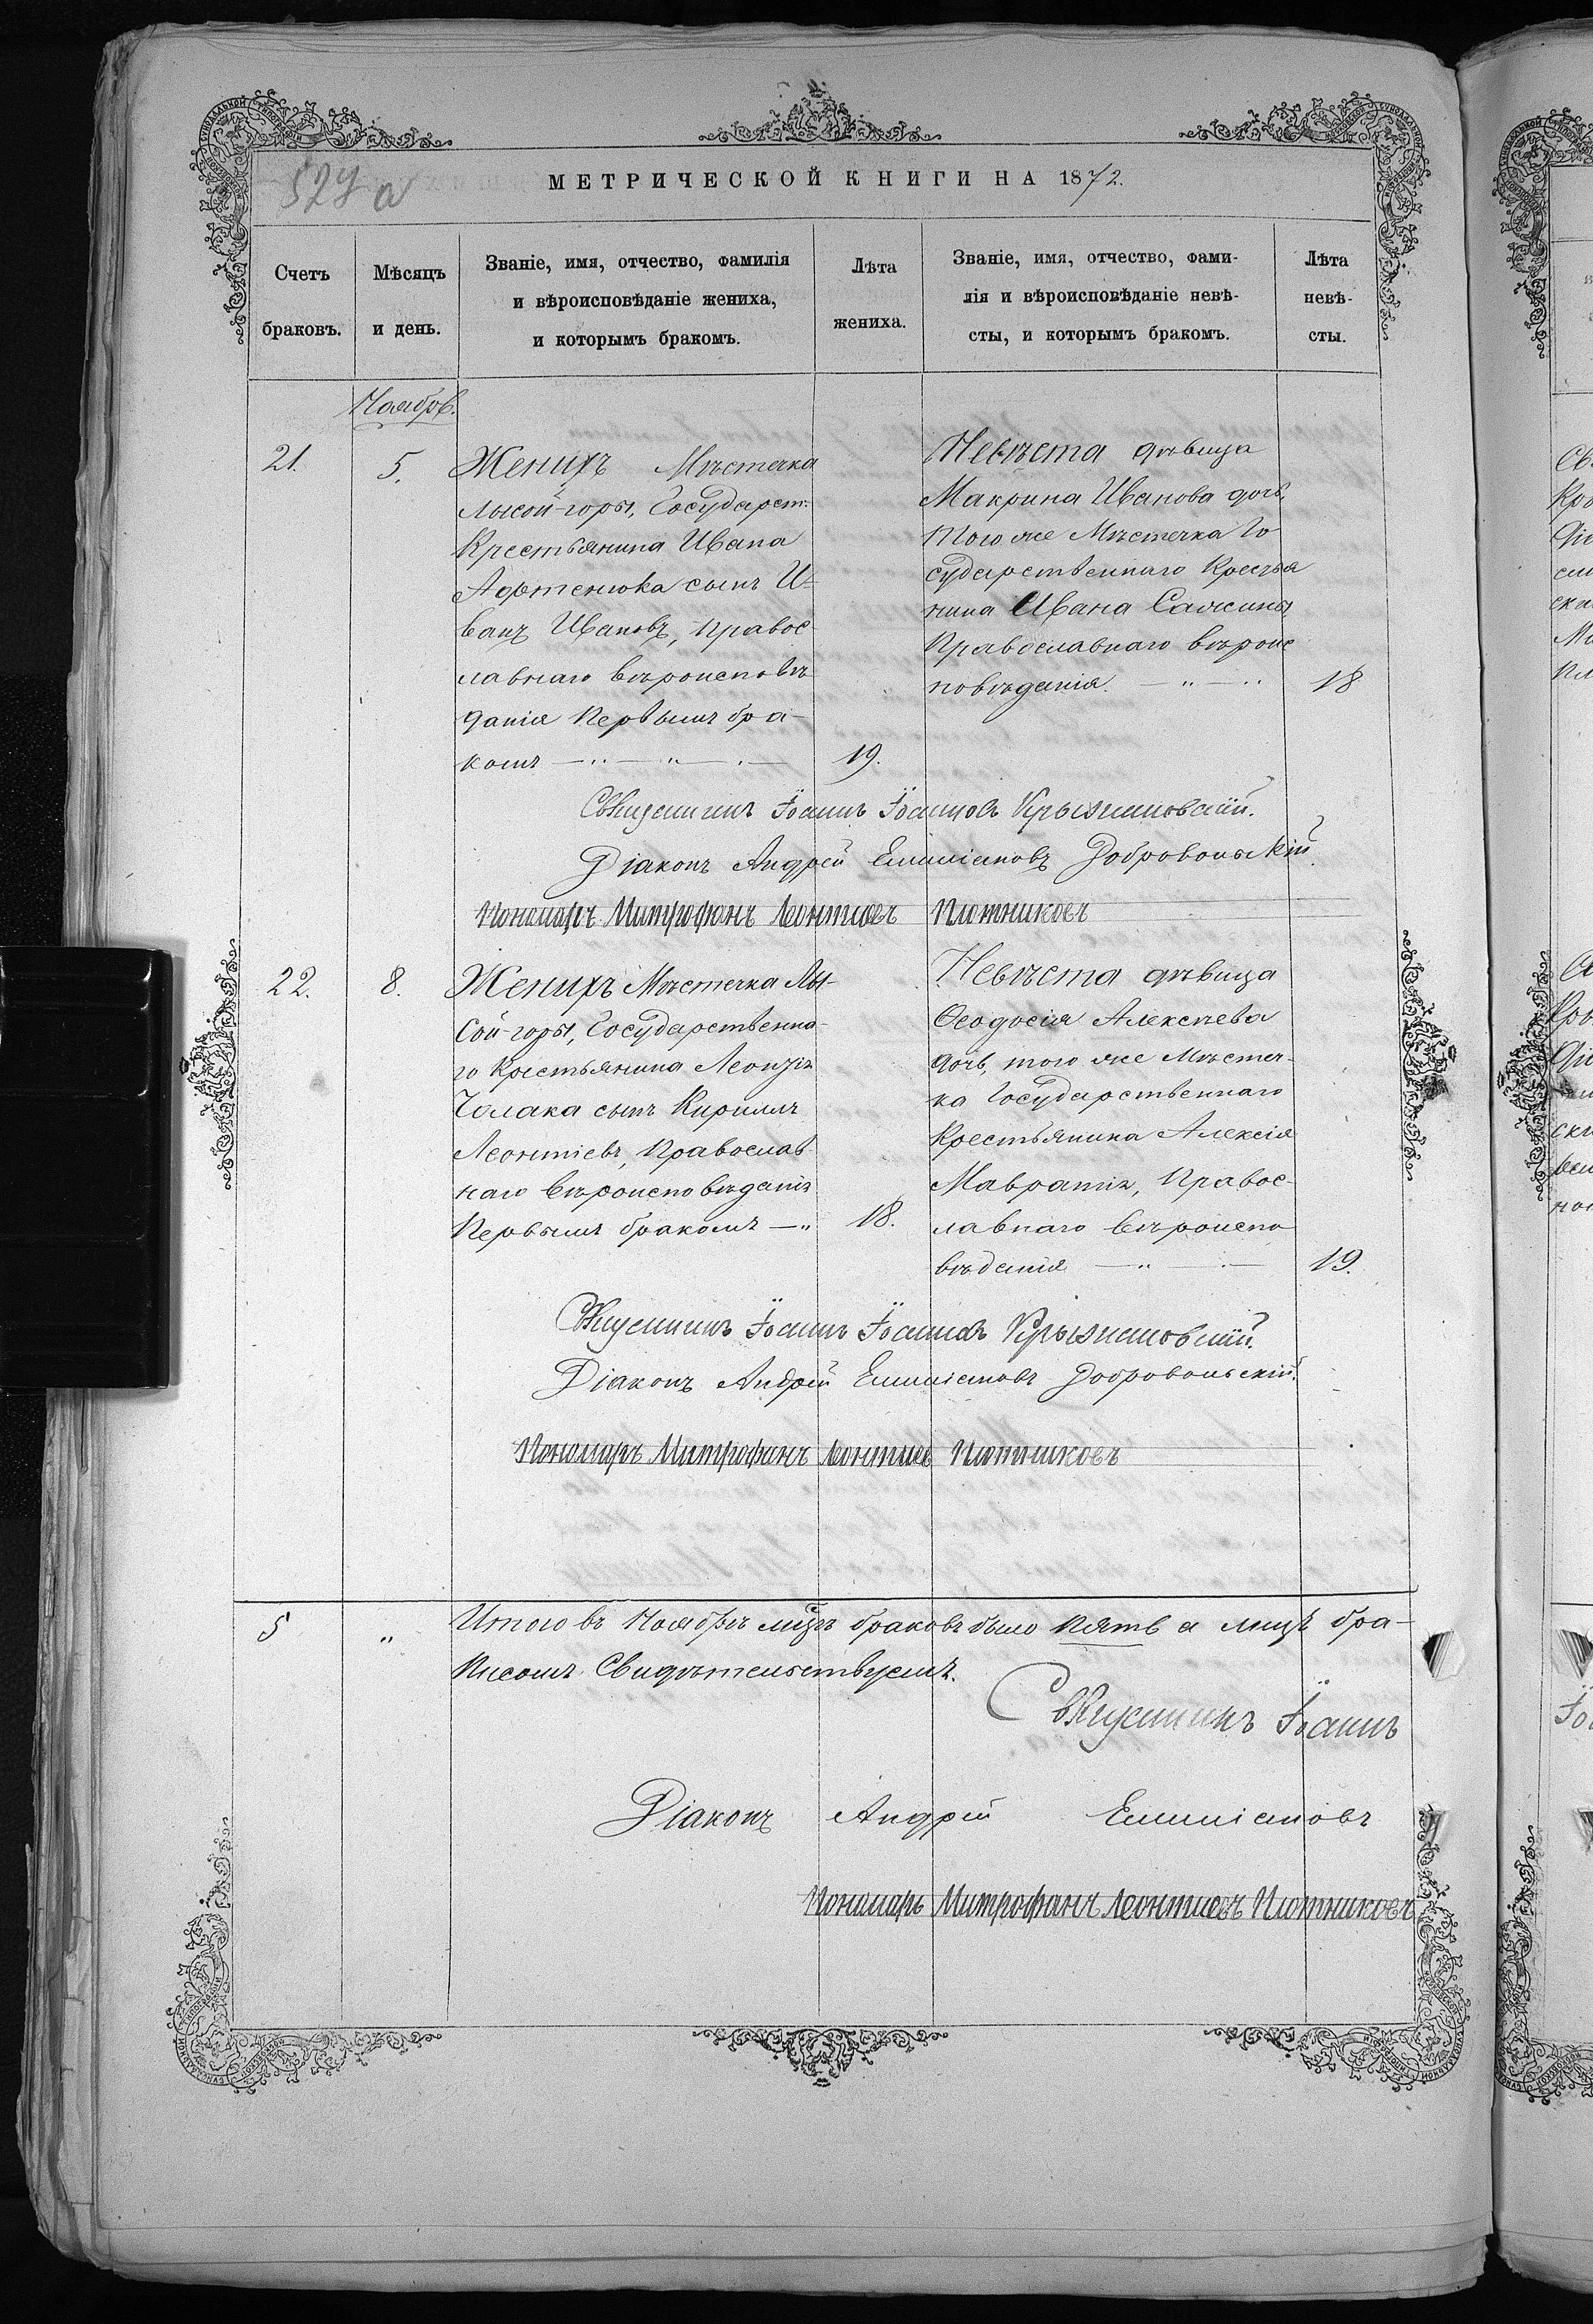 МЕТРИЧЕСКОЙ КНИГИ НА 1872.
Счетъ браковъ.
Мѣсяцъ и день.
Званіе, имя, отчество, фамилія
и вѣроисповѣданіе жениха,
и которымъ бракомъ.
Лѣта
жениха.
Званіе, имя, отчество, фами-
лія и вѣроисповѣданіе невѣ-
сты, и которымъ бракомъ.
Лѣта
невѣ-
сты.
Ноябрь.
21.
5.
Женихъ Мѣстечка
Лысой-горы, Государст.
Крестьянина Ивана
Афтенюка сынъ И-
ванъ Ивановъ, Правос
лавнаго вѣроисповѣ
данія первымъ бра-
комъ
19.
Невѣста дѣвица
Макрина Иванова дочь,
того же Мѣстечка Го
сударственнаго Крестья
нина Ивана
Православнаго вѣроис
повѣданія.
18
Священникъ Іоаннъ Іоанновъ Крыжановскій.
Діаконъ Андрей Емиліановъ Добровольскій.
Пономарь Митрофанъ Леонтиевъ Плотниковъ
22.
8.
Женихъ Мѣстечка Лы-
сой-горы, Государственна-
го Крестьянина Леонтія
Чолака сынъ Кириллъ
Леонтіевъ, Православ
наго вѣроисповѣданія
Первымъ бракомъ
18.
Невѣста дѣвица
Ѳеодосія Алексѣева
дочь, того же Мѣстеч-
ка Государственнаго
Крестьянина Алексія
Правос-
лавнаго вѣроиспо
вѣданія
19.
Священникъ Іоаннъ Іоанновъ Крыжановскій.
Діаконъ Андрей Емиліановъ Добровольскій.
Пономарь Митрофанъ Леонтиевъ Плотниковъ
5
"
Итого въ Ноябрѣ мѣсяцѣ браковъ было пять а лицъ бра-
Свидѣтельствуемъ.
Священникъ Іоаннъ
Діаконъ Андрей Емиліановъ
Пономарь Митрофанъ Леонтиевъ Плотниковъ